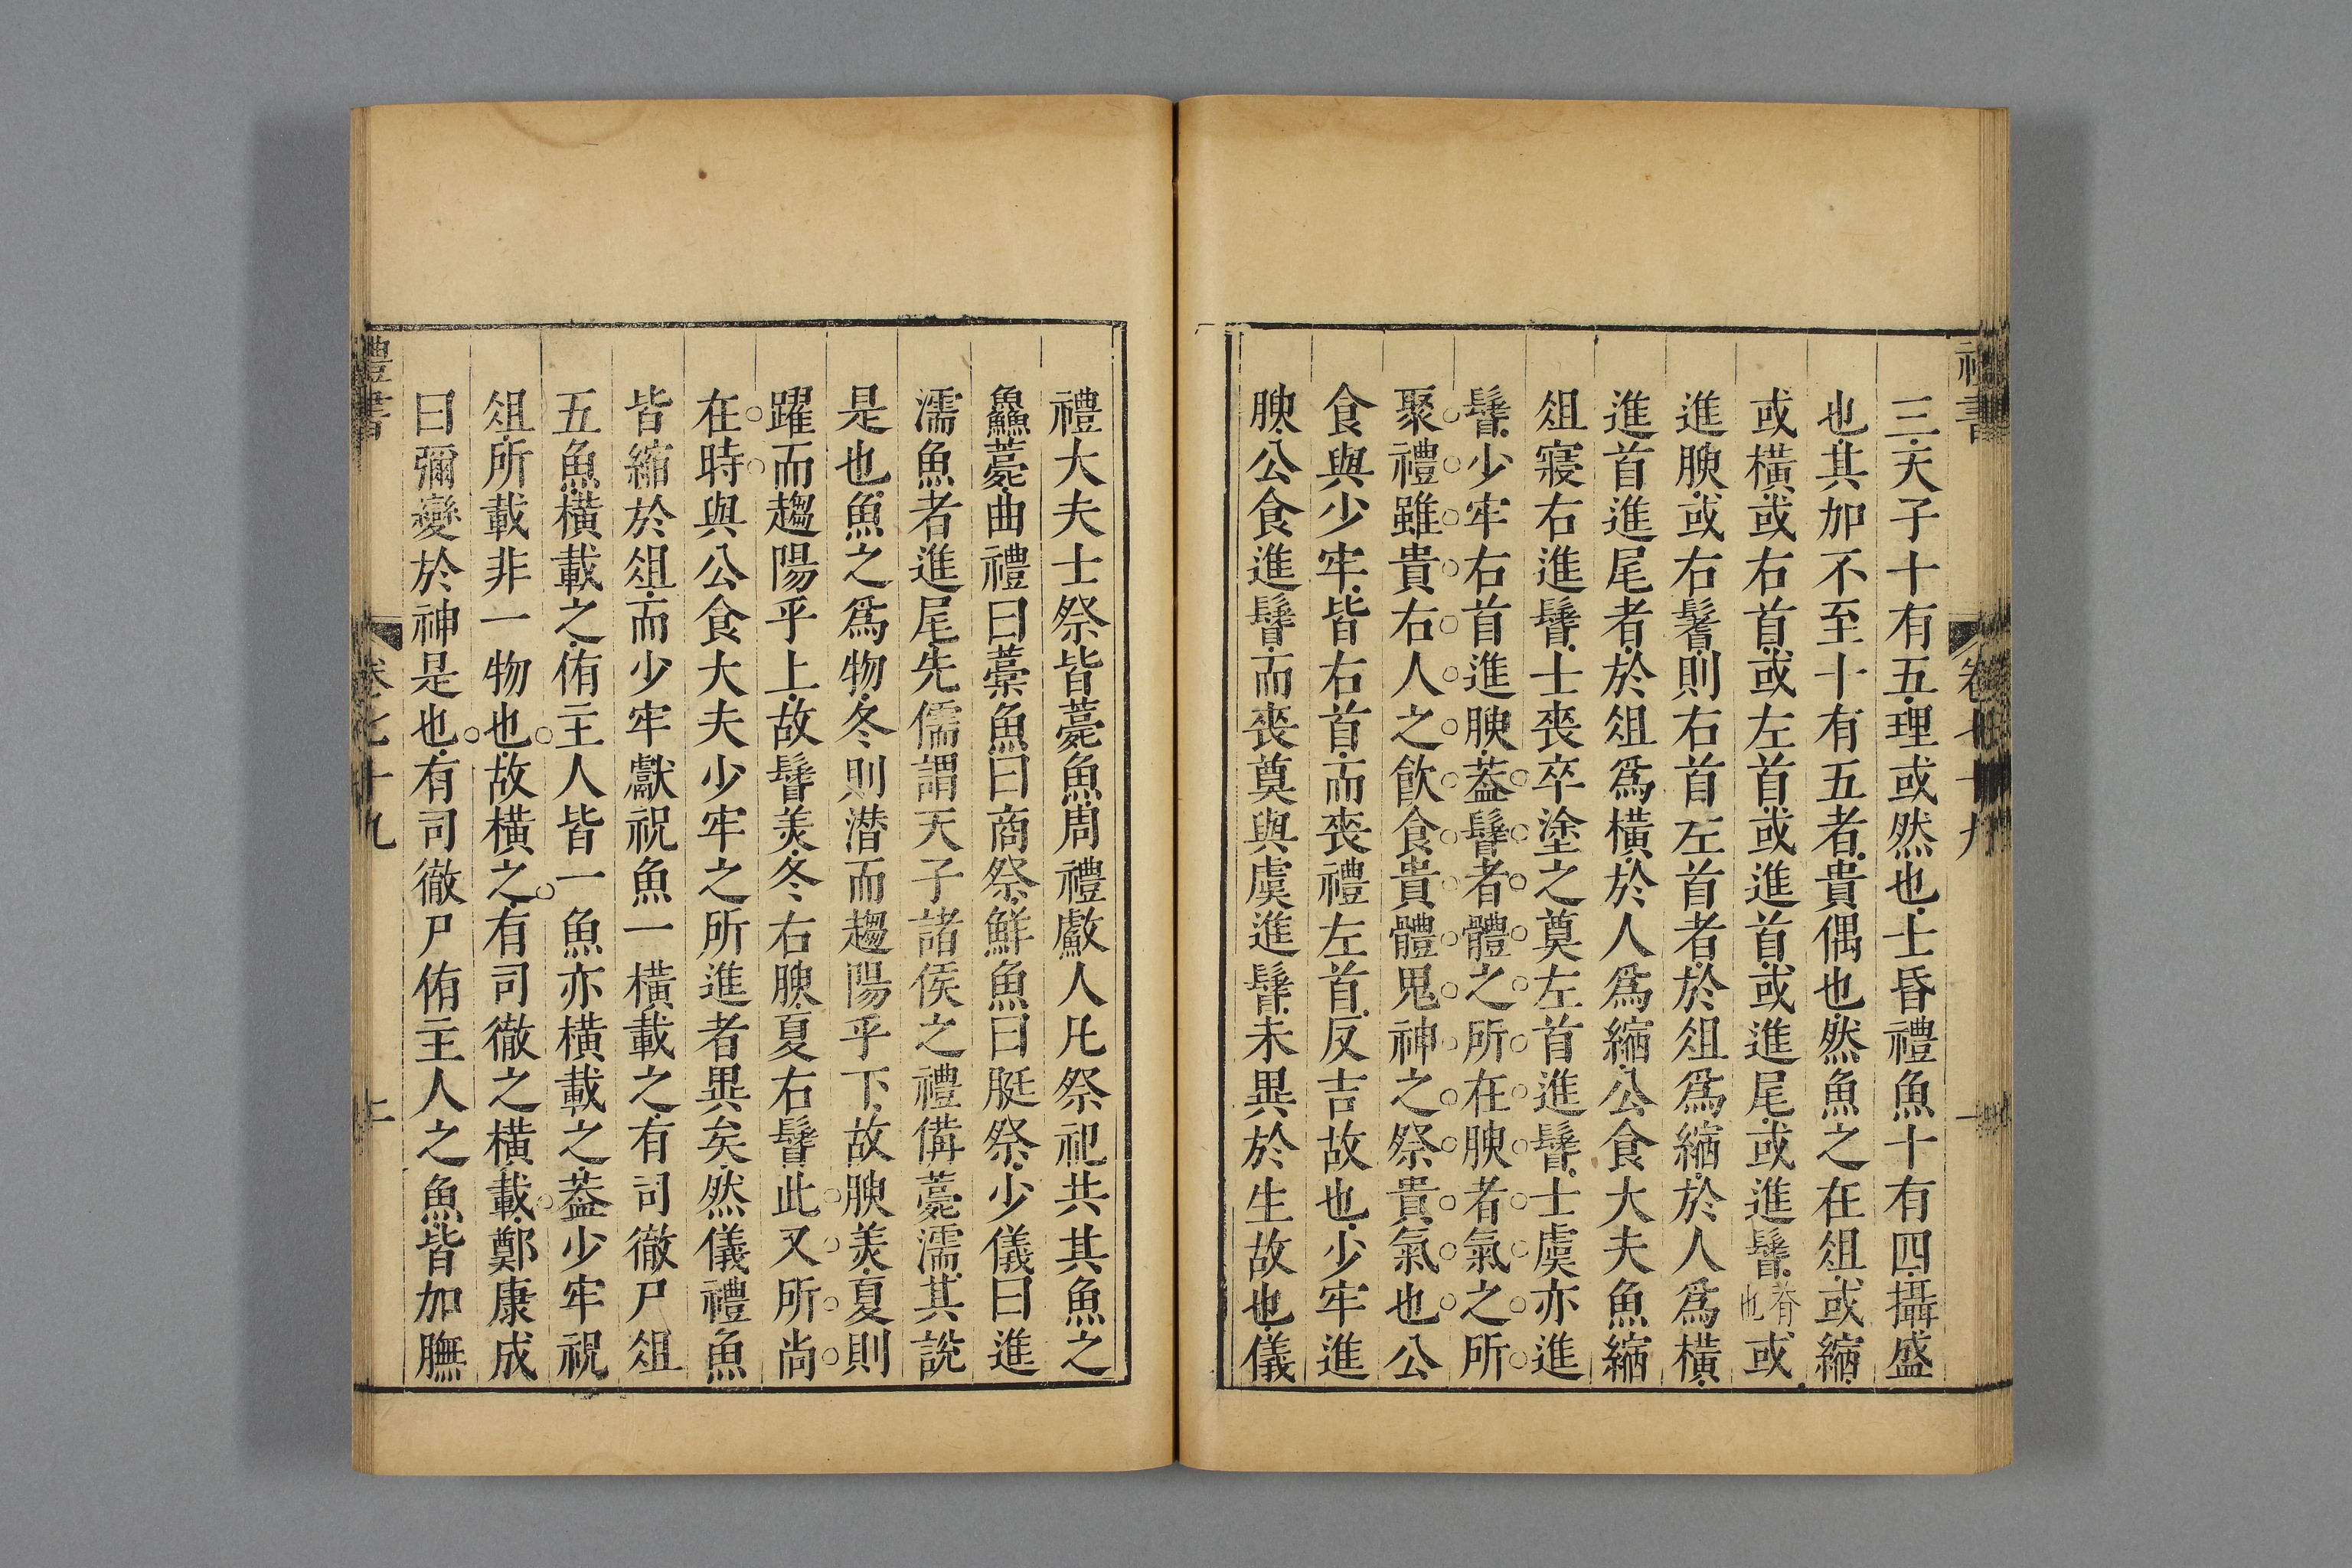 禮書 卷七十九 一
三天子十有五理或然也士昏禮魚十有四攝盛
也其加不至十有五者貴偶也然魚之在俎或縮
或橫或右首或左首或進首或進尾或進鬐脊也或
進腴或右鬐則右首左首者於俎爲縮於人爲橫
進首進尾者於俎爲橫於人爲縮公食大夫魚縮
俎寢右進鬐士喪卒塗之奠左首進鬐士虞亦進
鬐少牢右首進腴葢鬐者體之所在腴者氣之所
聚禮雖貴右人之飮食貴體鬼神之祭貴氣也公
食與少牢皆右首而喪禮左首反吉故也少牢進
腴公食進鬐而喪奠與虞進鬐未異於生故也儀
禮大夫士祭皆薧魚周禮䱷人凡祭祀共其魚之
鱻薧曲禮曰藁魚曰商祭鮮魚曰脡祭少儀曰進
濡魚者進尾先儒謂天子諸侯之禮備薧濡其說
是也魚之爲物冬則潛而趨陽乎下故腴美夏則
躍而趨陽乎上故鬐美冬右腴夏右鬐此又所尚
在時與公食大夫少牢之所進者異矣然儀禮魚
皆縮於俎而少牢獻祝魚一橫載之有司徹尸俎
五魚橫載之侑主人皆一魚亦橫載之葢少牢祝
俎所載非一物也故橫之有司徹之橫載鄭康成
曰彌變於神是也有司徹尸侑主人之魚皆加膴
禮書 卷七十九